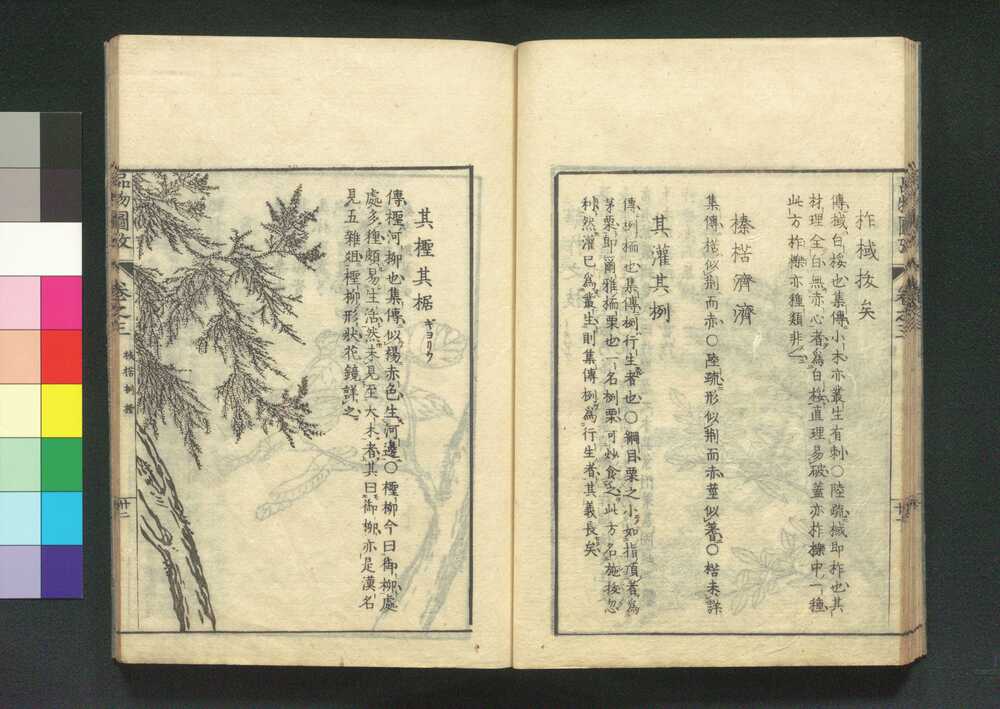 柞棫拔矣
傳棫白桵也集傳小木亦叢生有刺○陸疏棫即柞也其
材理全白無赤心者爲白桵直理易破蓋亦柞櫟中一種
此方柞櫟亦種類非一
榛楛濟濟
集傳楛似荊而赤○陸疏形似荊而赤莖似蓍○楛未詳
其灌其栵
傳栵栭也集傳栵行生者也○綱目栗之小如指頂者爲
茅栗即爾雅栭栗也一名栵栗可炒食之此方名施拔忽
利然灌已爲叢生則集傳栵爲行生者其義長矣
品物圖攷
卷之三
卅二
其檉其椐
ギヨリウ
傳檉河柳也集傳似楊赤色生河邊○檉柳今曰御柳處
處多種頗易生活然未見至大木者其曰御柳亦是漢名
見五雜俎檉柳形狀花鏡詳之
品物圖攷
卷之三
卅二